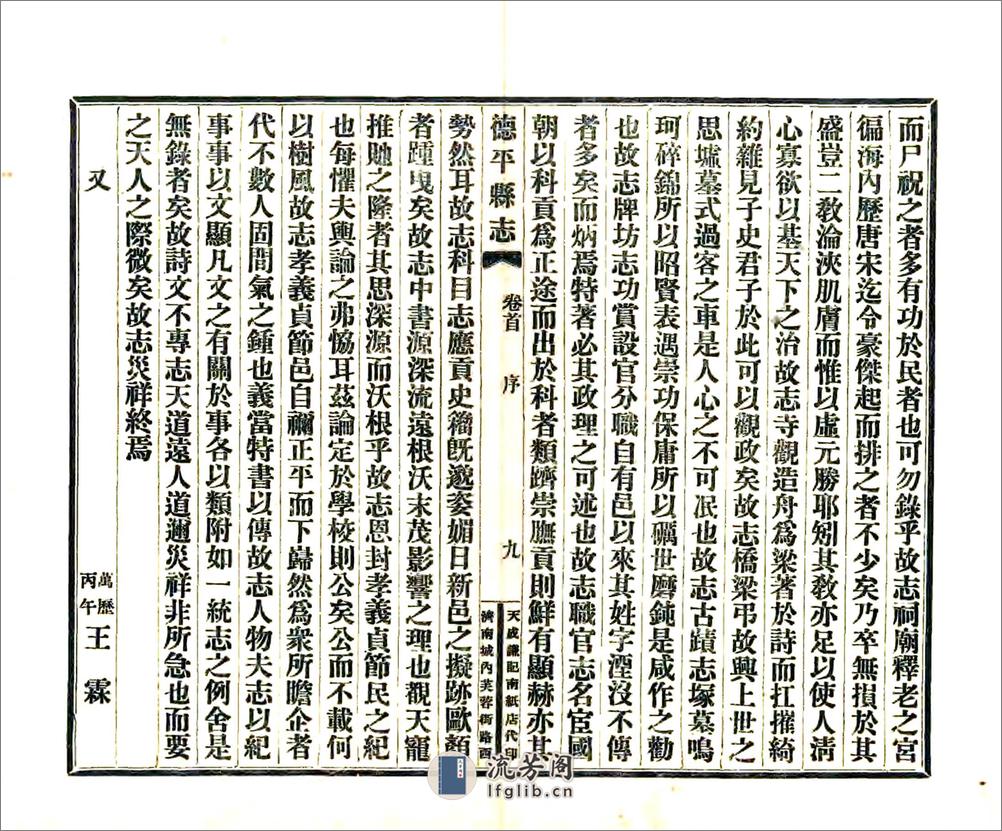 而尸祝之者多有功於民者也可勿錄乎故志祠廟釋老之宮
徧海內歷唐宋迄今豪傑起而排之者不少矣乃卒無損於其
盛豈二敎淪浹肌膚而惟以虛元勝耶矧其敎亦足以使人淸
心寡欲以基天下之治故志寺觀造舟爲梁著於詩而扛摧綺
約雜見子史君子於此可以觀政矣故志橋梁弔故興上世之
思墟墓式過客之車是人心之不可冺也故志古蹟志塚墓鳴
珂碎錦所以昭賢表遇崇功保庸所以礪世磨鈍是咸作之勸
也故志牌坊志功賞設官分職自有邑以來其姓字湮沒不傳
者多矣而炳焉特著必其政理之可述也故志職官志名宦國
朝以科貢爲正途而出於科者類躋崇膴貢則鮮有顯赫亦其
德平縣志 卷首 序 九 天成謙記南紙店代印
濟南城內芙蓉街路西
勢然耳故志科目志應貢史籀旣邈姿媚日新邑之擬跡歐顏
者踵曳矣故志中書源深流遠根沃末茂影響之理也覩天寵
推貤之隆者其思深源而沃根乎故志恩封孝義貞節民之紀
也每懼夫輿論之弗恊耳茲論定於學校則公矣公而不載何
以樹風故志孝義貞節邑自禰正平而下巋然爲衆所瞻企者
代不數人固間氣之鍾也義當特書以傳故志人物夫志以紀
事事以文顯凡文之有關於事各以類附如一統志之例舍是
無錄者矣故詩文不專志天道遠人道邇災祥非所急也而要
之天人之際微矣故志災祥終焉
又 萬歷丙午 王霖
流芳阁
lfglib.cn